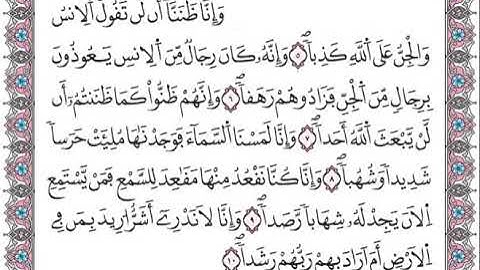 وَإِنَّا ظَنَنَّا أَن لَّن تَقُولَ اَلِانسُ
وَالْجِنُّ عَلَى اَللَّهِ كَذِباٗ ۝٥ وَإِنَّهُۥ كَانَ رِجَالٞ مِّنَ اَلِانسِ يَعُوذُونَ
بِرِجَالٖ مِّنَ اَلْجِنِّ فَزَادُوهُمْ رَهَقاٗ ۝٦ وَإِنَّهُمْ ظَنُّواْ كَمَا ظَنَنتُمُۥٓ أَن
لَّنْ يَّبْعَثَ اَللَّهُ أَحَداٗ ۝٧ وَإِنَّا لَمَسْنَا اَلسَّمَآءَ فَوَجَدْنَٰهَا مُلِئَتْ حَرَساٗ
شَدِيداٗ وَشُهُباٗ ۝٨ وَإِنَّا كُنَّا نَقْعُدُ مِنْهَا مَقَٰعِدَ لِلسَّمْعِ فَمَنْ يَّسْتَمِعِ
اِلَانَ يَجِدْ لَهُۥ شِهَاباٗ رَّصَداٗ ۝٩ وَإِنَّا لَا نَدْرِےٓ أَشَرٌّ ا۟رِيدَ بِمَن فِے
اِلَارْضِ أَمَ اَرَادَ بِهِمْ رَبُّهُمْ رَشَداٗ ۝١٠